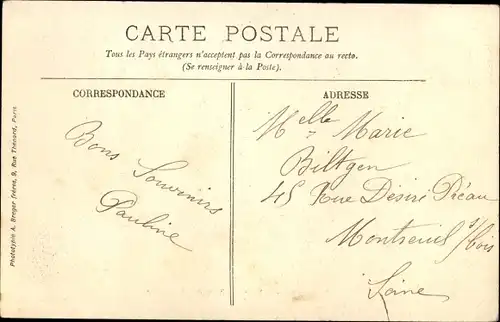 CARTE POSTALE
Tous les Pays étrangers n'acceptent pas la Correspondance au recto.
(Se renseigner à la Poste).
CORRESPONDANCE
Bons
Souvenirs
Pauline
ADRESSE
Melle Marie
Biltgen
45 Rue Désiré Préau
Montreuil s/ Bois
Seine
Phototypie A. Breger frères, 9, Rue Thénard, Paris